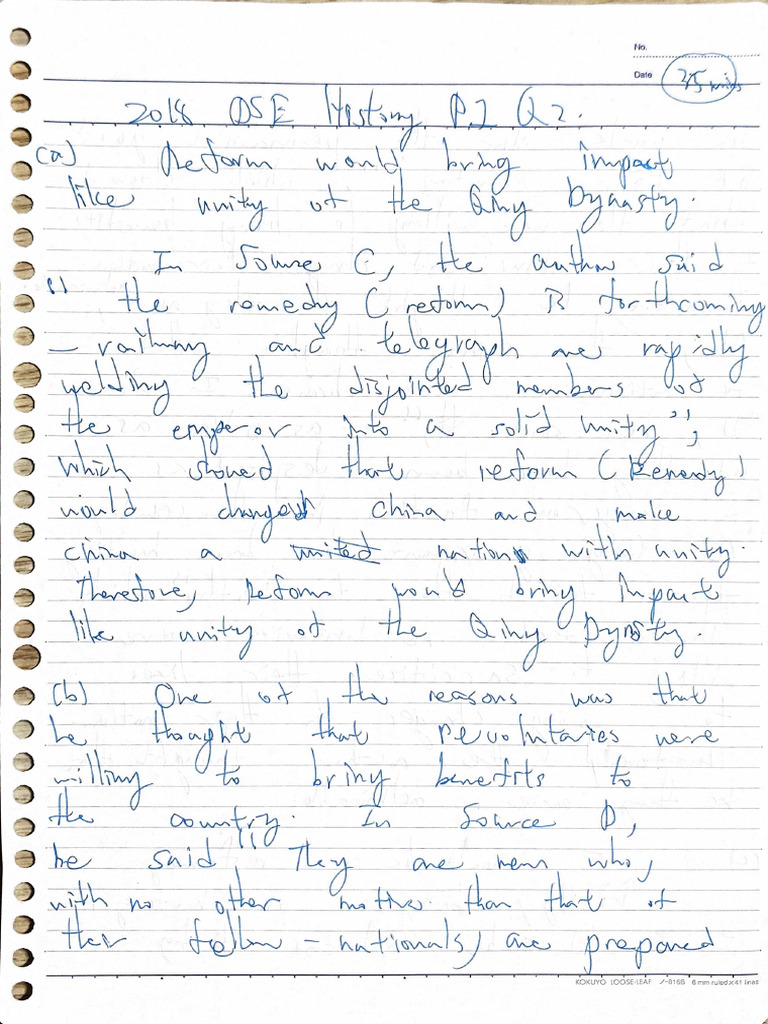 No.
Date 25 mins
2018 DSE History P1 Q2.
(a) Reform would bring impact
like unity of the Qing Dynasty.
In Source C, the author said
" the remedy (reform) is forthcoming
— railway and telegraph are rapidly
welding the disjointed members of
the emperor into a solid unity",
which showed that reform (Remedy)
would change China and make
china a united nation with unity.
Therefore, Reform would bring impact
like unity of the Qing Dynsty.
(b) One of the reasons was that
he thought that revoluntaries were
willing to bring benefits to
the country. In Source D,
he said " They are men who,
with no other motive than that of
their fellow-nationals, are prepared
KOKUYO LOOSE-LEAF ノ-816B 6 mm ruled×41 lines